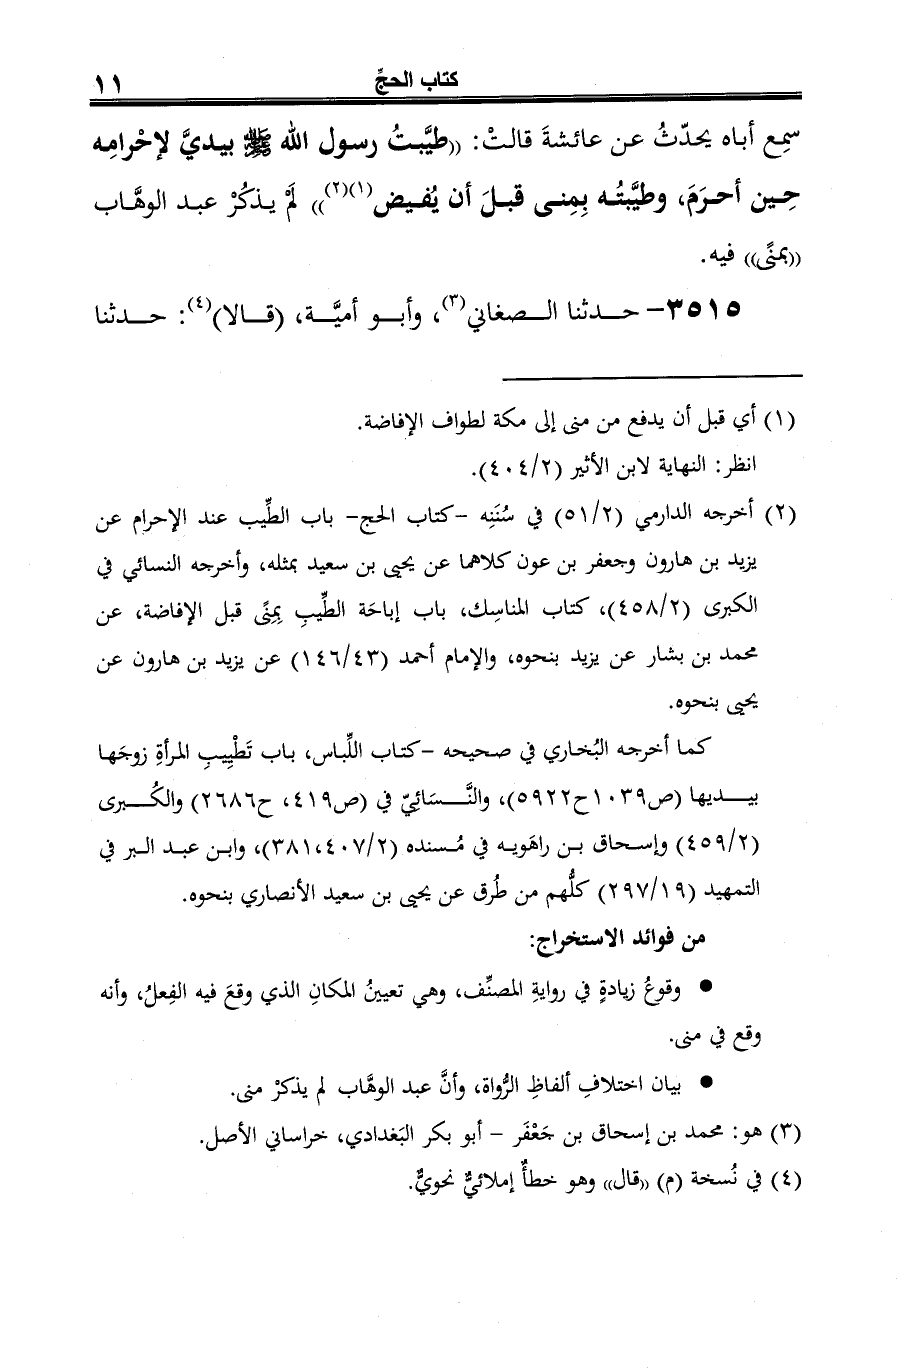 كتاب الحجِّ ١١
سمِع أباه يحدّثُ عن عائشةَ قالتْ: ((طيَّبتُ رسول الله ﷺ بيديَّ لإحْرامِه
حِين أحرَمَ، وطيَّبتُه بِمِنى قبلَ أن يُفيض(١)(٢))) لَمْ يذكُرْ عبد الوهَّاب
((بمنًى)) فيه.
٣٥١٥- حدثنا الصغاني(٣)، وأبو أميَّة، (قالا)(٤): حدثنا
(١) أي قبل أن يدفع من منى إلى مكة لطواف الإفاضة.
انظر: النهاية لابن الأثير (٤٠٤/٢).
(٢) أخرجه الدارمي (٥١/٢) في سُنَنِه -كتاب الحج- باب الطِّيب عند الإحرام عن
يزيد بن هارون وجعفر بن عون كلاهما عن يحيى بن سعيد بمثله، وأخرجه النسائي في
الكبرى (٤٥٨/٢)، كتاب المناسِك، باب إباحَة الطِّيبِ بِمِنًى قبل الإفاضة، عن
محمد بن بشار عن يزيد بنحوه، والإمام أحمد (١٤٦/٤٣) عن يزيد بن هارون عن
يحيى بنحوه.
كما أخرجه البُخاري في صحيحه -كتاب اللِّباس، باب تَطْيِيبِ المرأةِ زوجَها
بيديها (ص١٠٣٩ح٥٩٢٢)، والنَّسَائيّ في (ص٤١٩، ح٢٦٨٦) والكُبرى
(٤٥٩/٢) وإسحاق بن راهَويه في مُسنده (٣٨١،٤٠٧/٢)، وابن عبد البر في
التمهيد (٢٩٧/١٩) كلُّهم من طُرق عن يحيى بن سعيد الأنصاري بنحوه.
من فوائد الاستخراج:
• وقوعُ زيادةٍ في روايةِ المصنِّف، وهي تعيينُ المكانِ الذي وقعَ فيه الفِعلُ، وأنه
وقع في منى.
• بيان اختلافِ ألفاظِ الرُّواة، وأنَّ عبد الوهَّاب لم يذكرْ منى.
(٣) هو: محمد بن إسحاق بن جَعْفَر - أبو بكر البَغدادي، خراساني الأصل.
(٤) في نُسخة (م) ((قال)) وهو خطأٌ إملائيٌّ نحويٌّ.